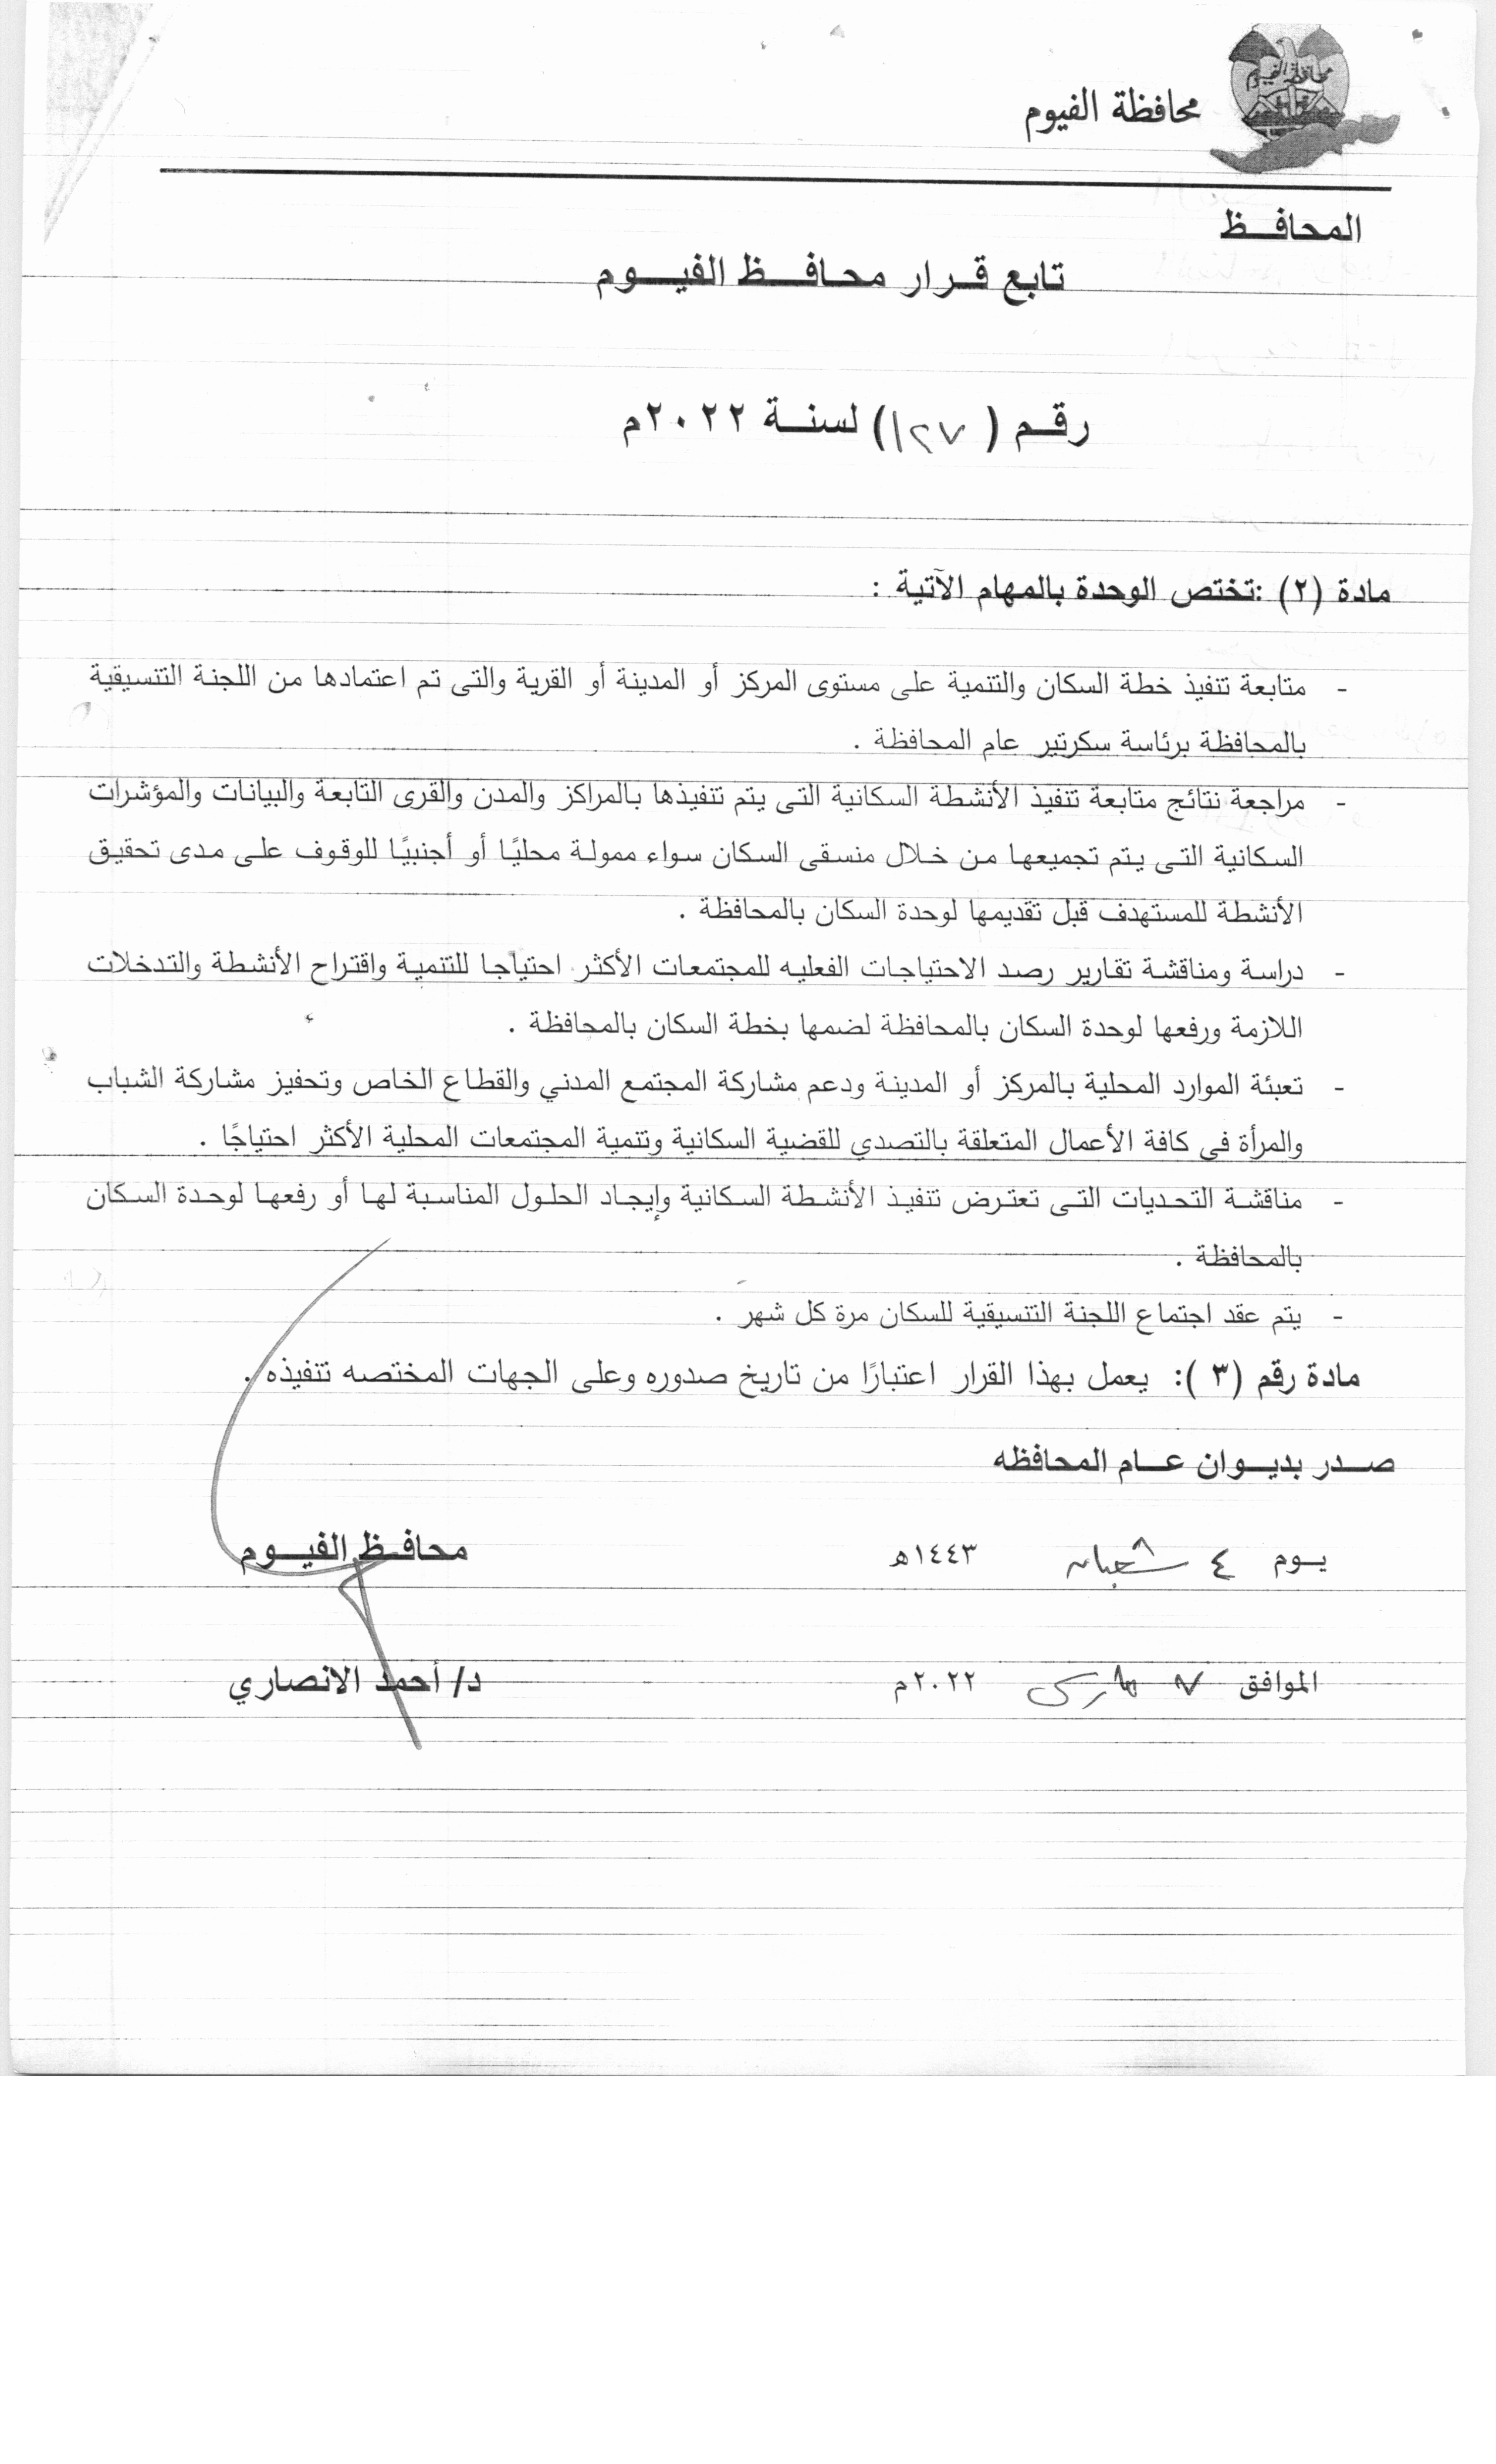 محافظة الفيوم
محافظة الفيوم
المحافـــظ
تابع قــرار محافـــظ الفيــــوم
رقــم ( ١٢٧) لسنــة ٢٠٢٢م
مادة (٢) :تختص الوحدة بالمهام الآتية :
- متابعة تنفيذ خطة السكان والتنمية على مستوى المركز أو المدينة أو القرية والتى تم اعتمادها من اللجنة التنسيقية
بالمحافظة برئاسة سكرتير عام المحافظة .
- مراجعة نتائج متابعة تنفيذ الأنشطة السكانية التى يتم تنفيذها بالمراكز والمدن والقرى التابعة والبيانات والمؤشرات
السكانية التى يتم تجميعها من خلال منسقى السكان سواء ممولة محليًا أو أجنبيًا للوقوف على مدى تحقيق
الأنشطة للمستهدف قبل تقديمها لوحدة السكان بالمحافظة .
- دراسة ومناقشة تقارير رصد الاحتياجات الفعليه للمجتمعات الأكثر احتياجا للتنمية واقتراح الأنشطة والتدخلات
اللازمة ورفعها لوحدة السكان بالمحافظة لضمها بخطة السكان بالمحافظة .
- تعبئة الموارد المحلية بالمركز أو المدينة ودعم مشاركة المجتمع المدني والقطاع الخاص وتحفيز مشاركة الشباب
والمرأة فى كافة الأعمال المتعلقة بالتصدي للقضية السكانية وتنمية المجتمعات المحلية الأكثر احتياجًا .
- مناقشة التحديات التى تعترض تنفيذ الأنشطة السكانية وإيجاد الحلول المناسبة لها أو رفعها لوحدة السكان
بالمحافظة .
- يتم عقد اجتماع اللجنة التنسيقية للسكان مرة كل شهر .
مادة رقم (٣ ): يعمل بهذا القرار اعتبارًا من تاريخ صدوره وعلى الجهات المختصه تنفيذه .
صـــدر بديـــوان عـــام المحافظه
يــوم ٤ شعبان ١٤٤٣هـ
محافــظ الفيــــوم
الموافق ٧ مارس ٢٠٢٢م
د/ أحمد الانصاري